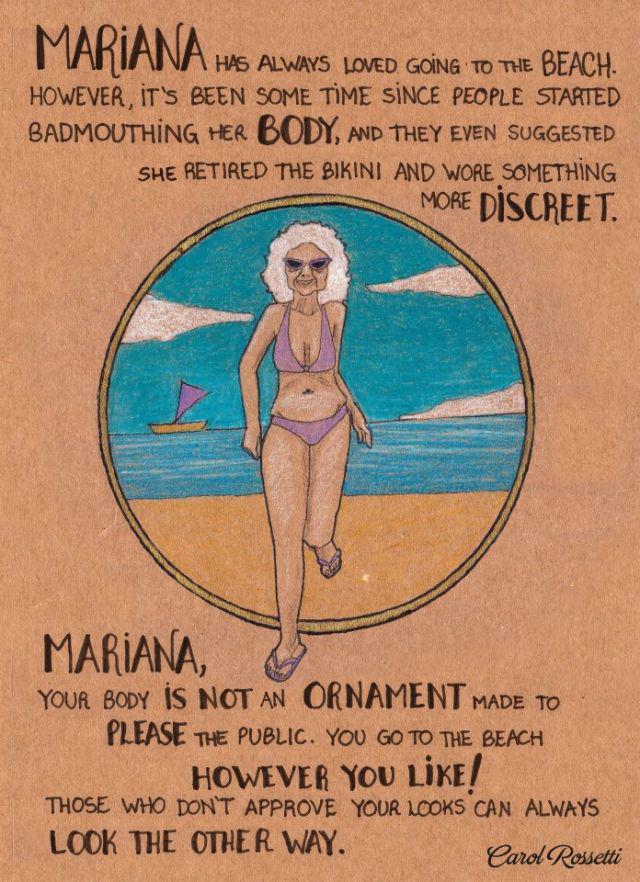 MARIANA HAS ALWAYS LOVED GOING TO THE BEACH.
HOWEVER, IT'S BEEN SOME TIME SINCE PEOPLE STARTED
BADMOUTHING HER BODY, AND THEY EVEN SUGGESTED
SHE RETIRED THE BIKINI AND WORE SOMETHING
MORE DISCREET.
MARIANA,
YOUR BODY IS NOT AN ORNAMENT MADE TO
PLEASE THE PUBLIC. YOU GO TO THE BEACH
HOWEVER YOU LIKE!
THOSE WHO DON'T APPROVE YOUR LOOKS CAN ALWAYS
LOOK THE OTHER WAY.
Carol Rossetti